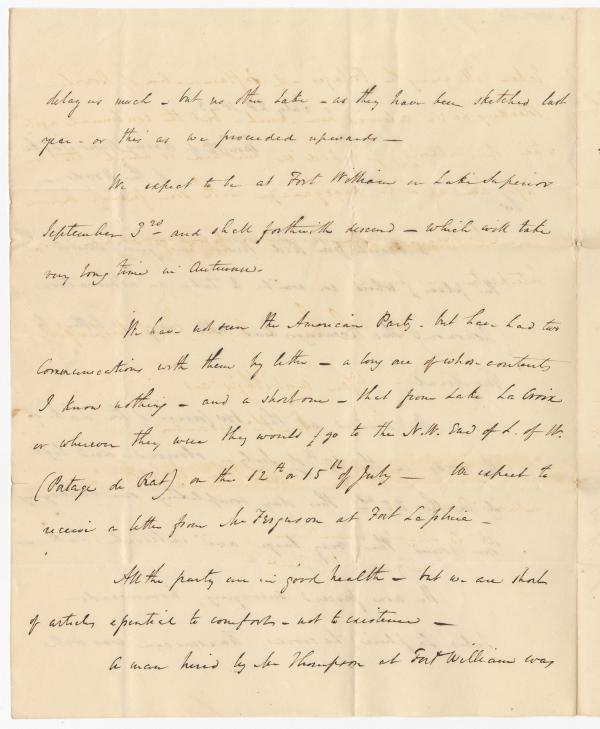 delay us much – but no other Lake – as they have been sketched last
year – or this as we proceeded upwards –
We expect to be at Fort William on Lake Superior
September 3rd and shall forthwith descend – which will take
very long time in Autumn.
We have not seen the American Party – but have had two
Communications with them by letter – a long one of whose contents
I know nothing – and a short one – that from Lake La Croix
or wherever they were they would go to the N.W. End of L. of W.
(Portage de Rat) on the 12th or 15th of July – We expect to
receive a letter from Mr Ferguson at Fort La pluie –
All the party are in good health – but we are short
of articles essential to comfort – not to existence –
A man hired by Mr Thompson at Fort William was